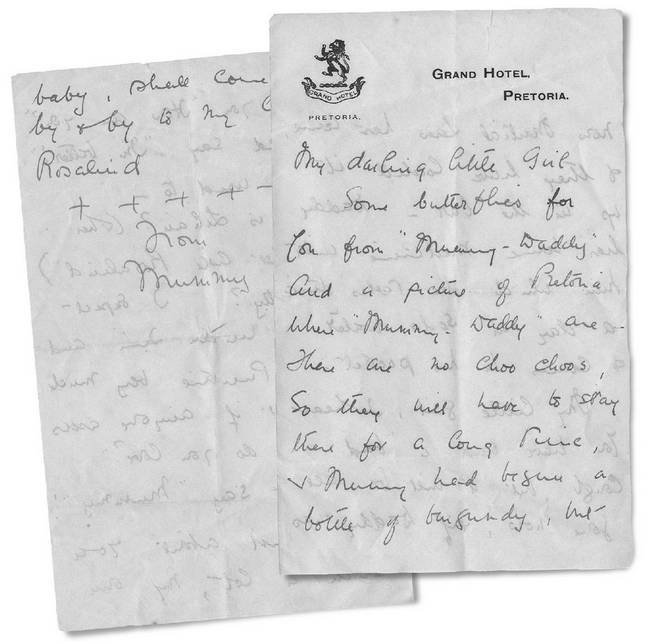 baby, shall come
by & by to my
Rosalind
+ + + + -
From
Mummy
GRAND HOTEL
PRETORIA.
GRAND HOTEL,
PRETORIA.
My darling little Girl
Some butterflies for
You from "Mummy-Daddy"
And a picture of Pretoria
where "Mummy-Daddy" are -
There are no choo choos,
So they will have to stay
there for a long time,
& Mummy had begun a
bottle of burgundy, but